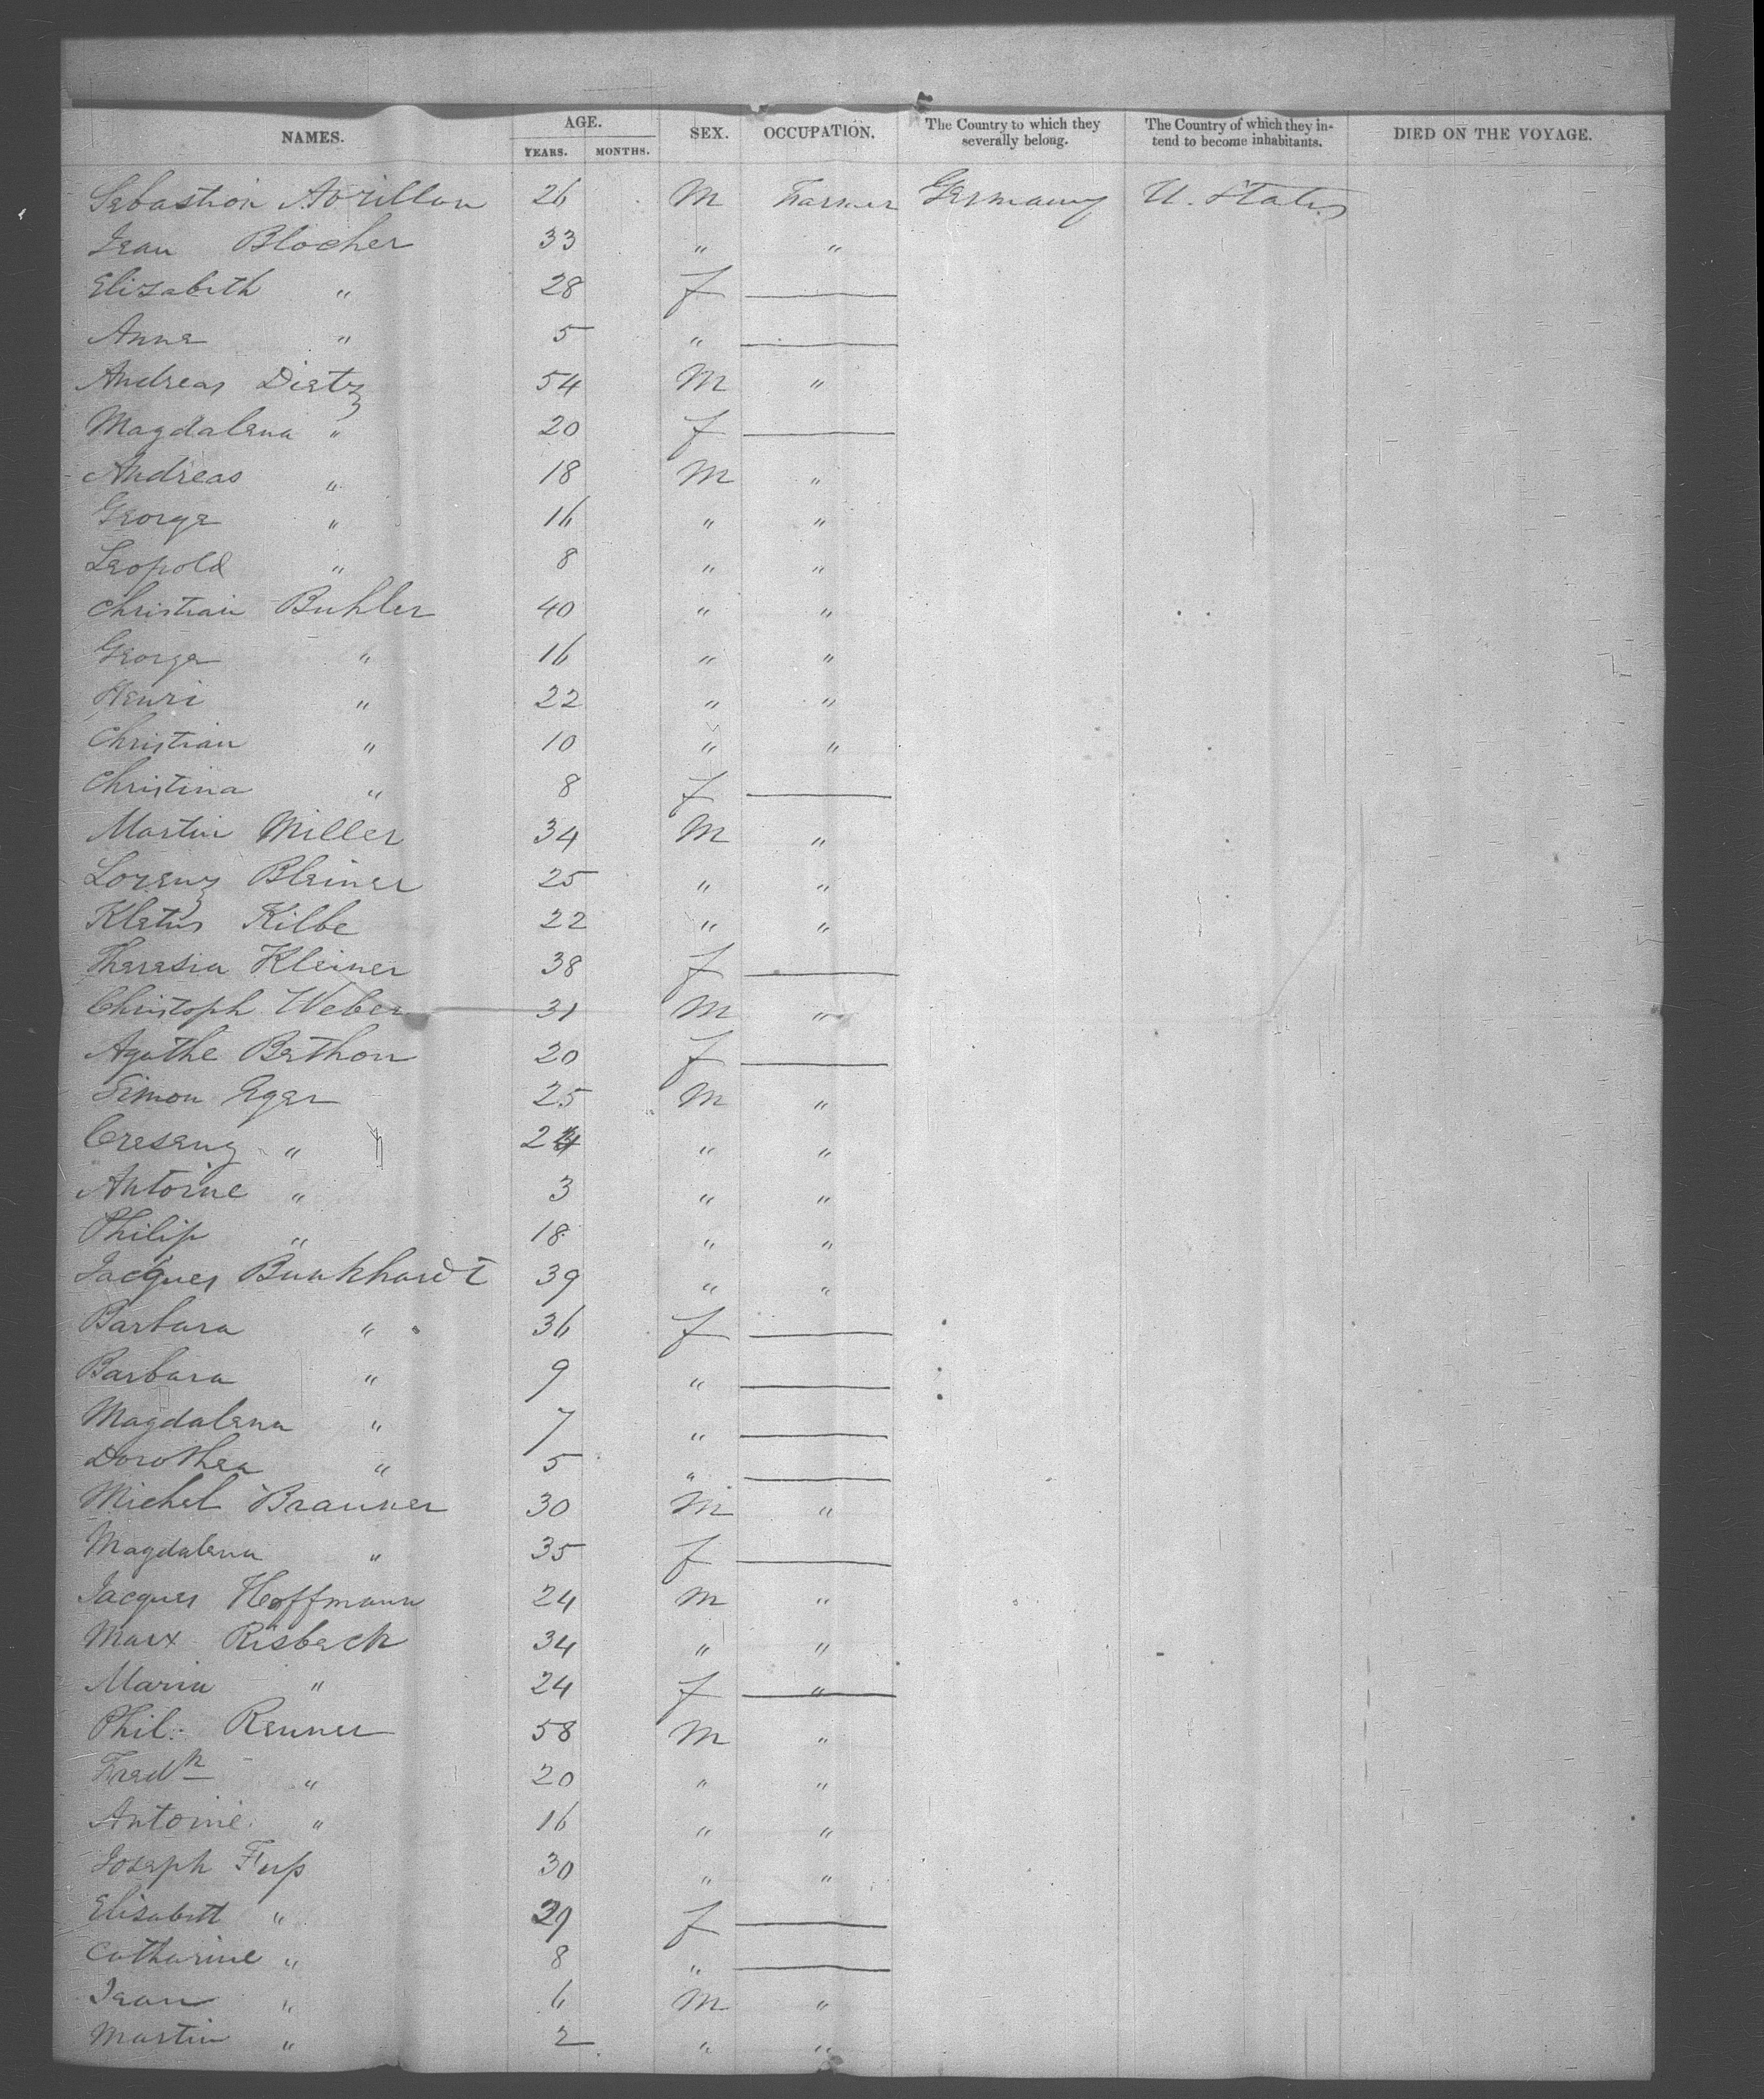 NAMES. AGE. SEX. OCCUPATION. The Country to which they severally belong. The Country of which they intend to become inhabitants. DIED ON THE VOYAGE.
YEARS. MONTHS.
Sebastian Avrillon 26 M Farmer Germany U. States
Jean Blocher 33 " "
Elizabeth " 28 f —
Anna " 5 " —
Andreas Dietz 54 M "
Magdalena " 20 f —
Andreas " 18 M "
George " 16 " "
Leopold " 8 " "
Christian Buhler 40 " "
George " 16 " "
Henri " 22 " "
Christian " 10 " "
Christina " 8 f —
Martin Miller 34 M "
Lorenz Bleiner 25 " "
Kletus Kilbe 22 " "
Theresia Kleiner 38 f —
Christoph Weber 31 M "
Agathe Berthon 20 f —
Simon Eger 25 M "
Cresenz " 24 " "
Antoine " 3 " "
Philip " 18 " "
Jacques Burkhardt 39 " "
Barbara " 36 f —
Barbara " 9 " —
Magdalena " 7 " —
Dorothea " 5 " —
Michel Brauner 30 M "
Magdalena " 35 f —
Jacques Hoffmann 24 M "
Marx Risbeck 34 " "
Maria " 24 f "
Phil: Renner 58 M "
Fredk " 20 " "
Antoine " 16 " "
Joseph Fuß 30 " "
Elisabett " 29 f —
Catharine " 8 " —
Jean " 6 M "
Martin " 2 " "